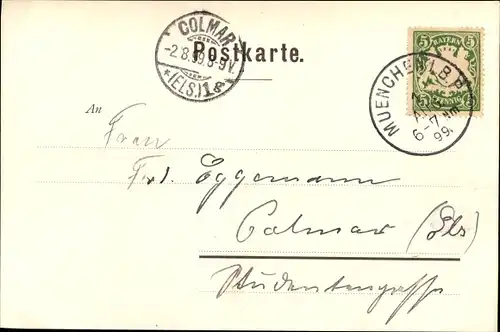 COLMAR
-2.8.99.8-9V.
*(ELS.)1a
Postkarte.
5 BAYERN 5
5 PFENNIG 5
MUENCHEN I.B.P.
6-7 Nm
99.
An
Frau
Frl. Eggemann
Colmar (Els)
Studentengasse